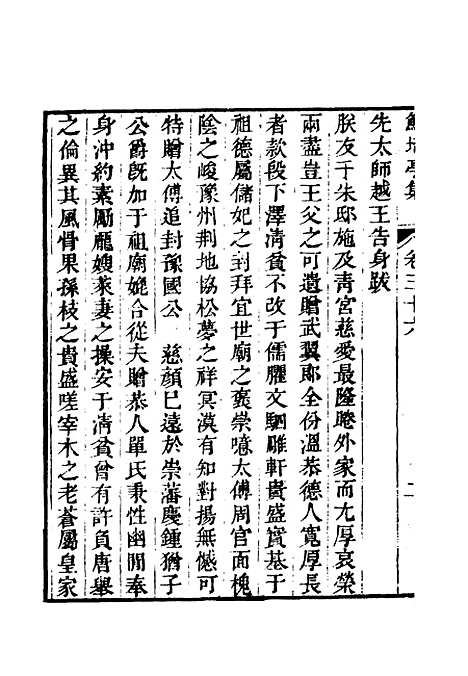 鮚埼亭集 卷三十六 二
先太師越王告身跋
朕友于朱邸施及靑宮慈愛最隆睠外家而尢厚哀榮
兩盡豈王父之可遺贈武翼郎全份溫恭德人寬厚長
者款段下澤淸貧不改于儒臞文駟雕軒貴盛實基于
祖德屬儲妃之封拜宜世廟之褒崇噫太傅周官面槐
陰之峻豫州荆地協松夢之祥冥漠有知對揚無憾可
特贈太傅追封豫國公 慈顏已遠於崇藩慶鍾猶子
公爵旣加于祖廟媲合從夫贈恭人單氏秉性幽閒奉
身沖約素勵龐嫂萊妻之操安于淸貧曾有許負唐舉
之倫異其風骨果孫枝之貴盛嗟宰木之老蒼屬皇家